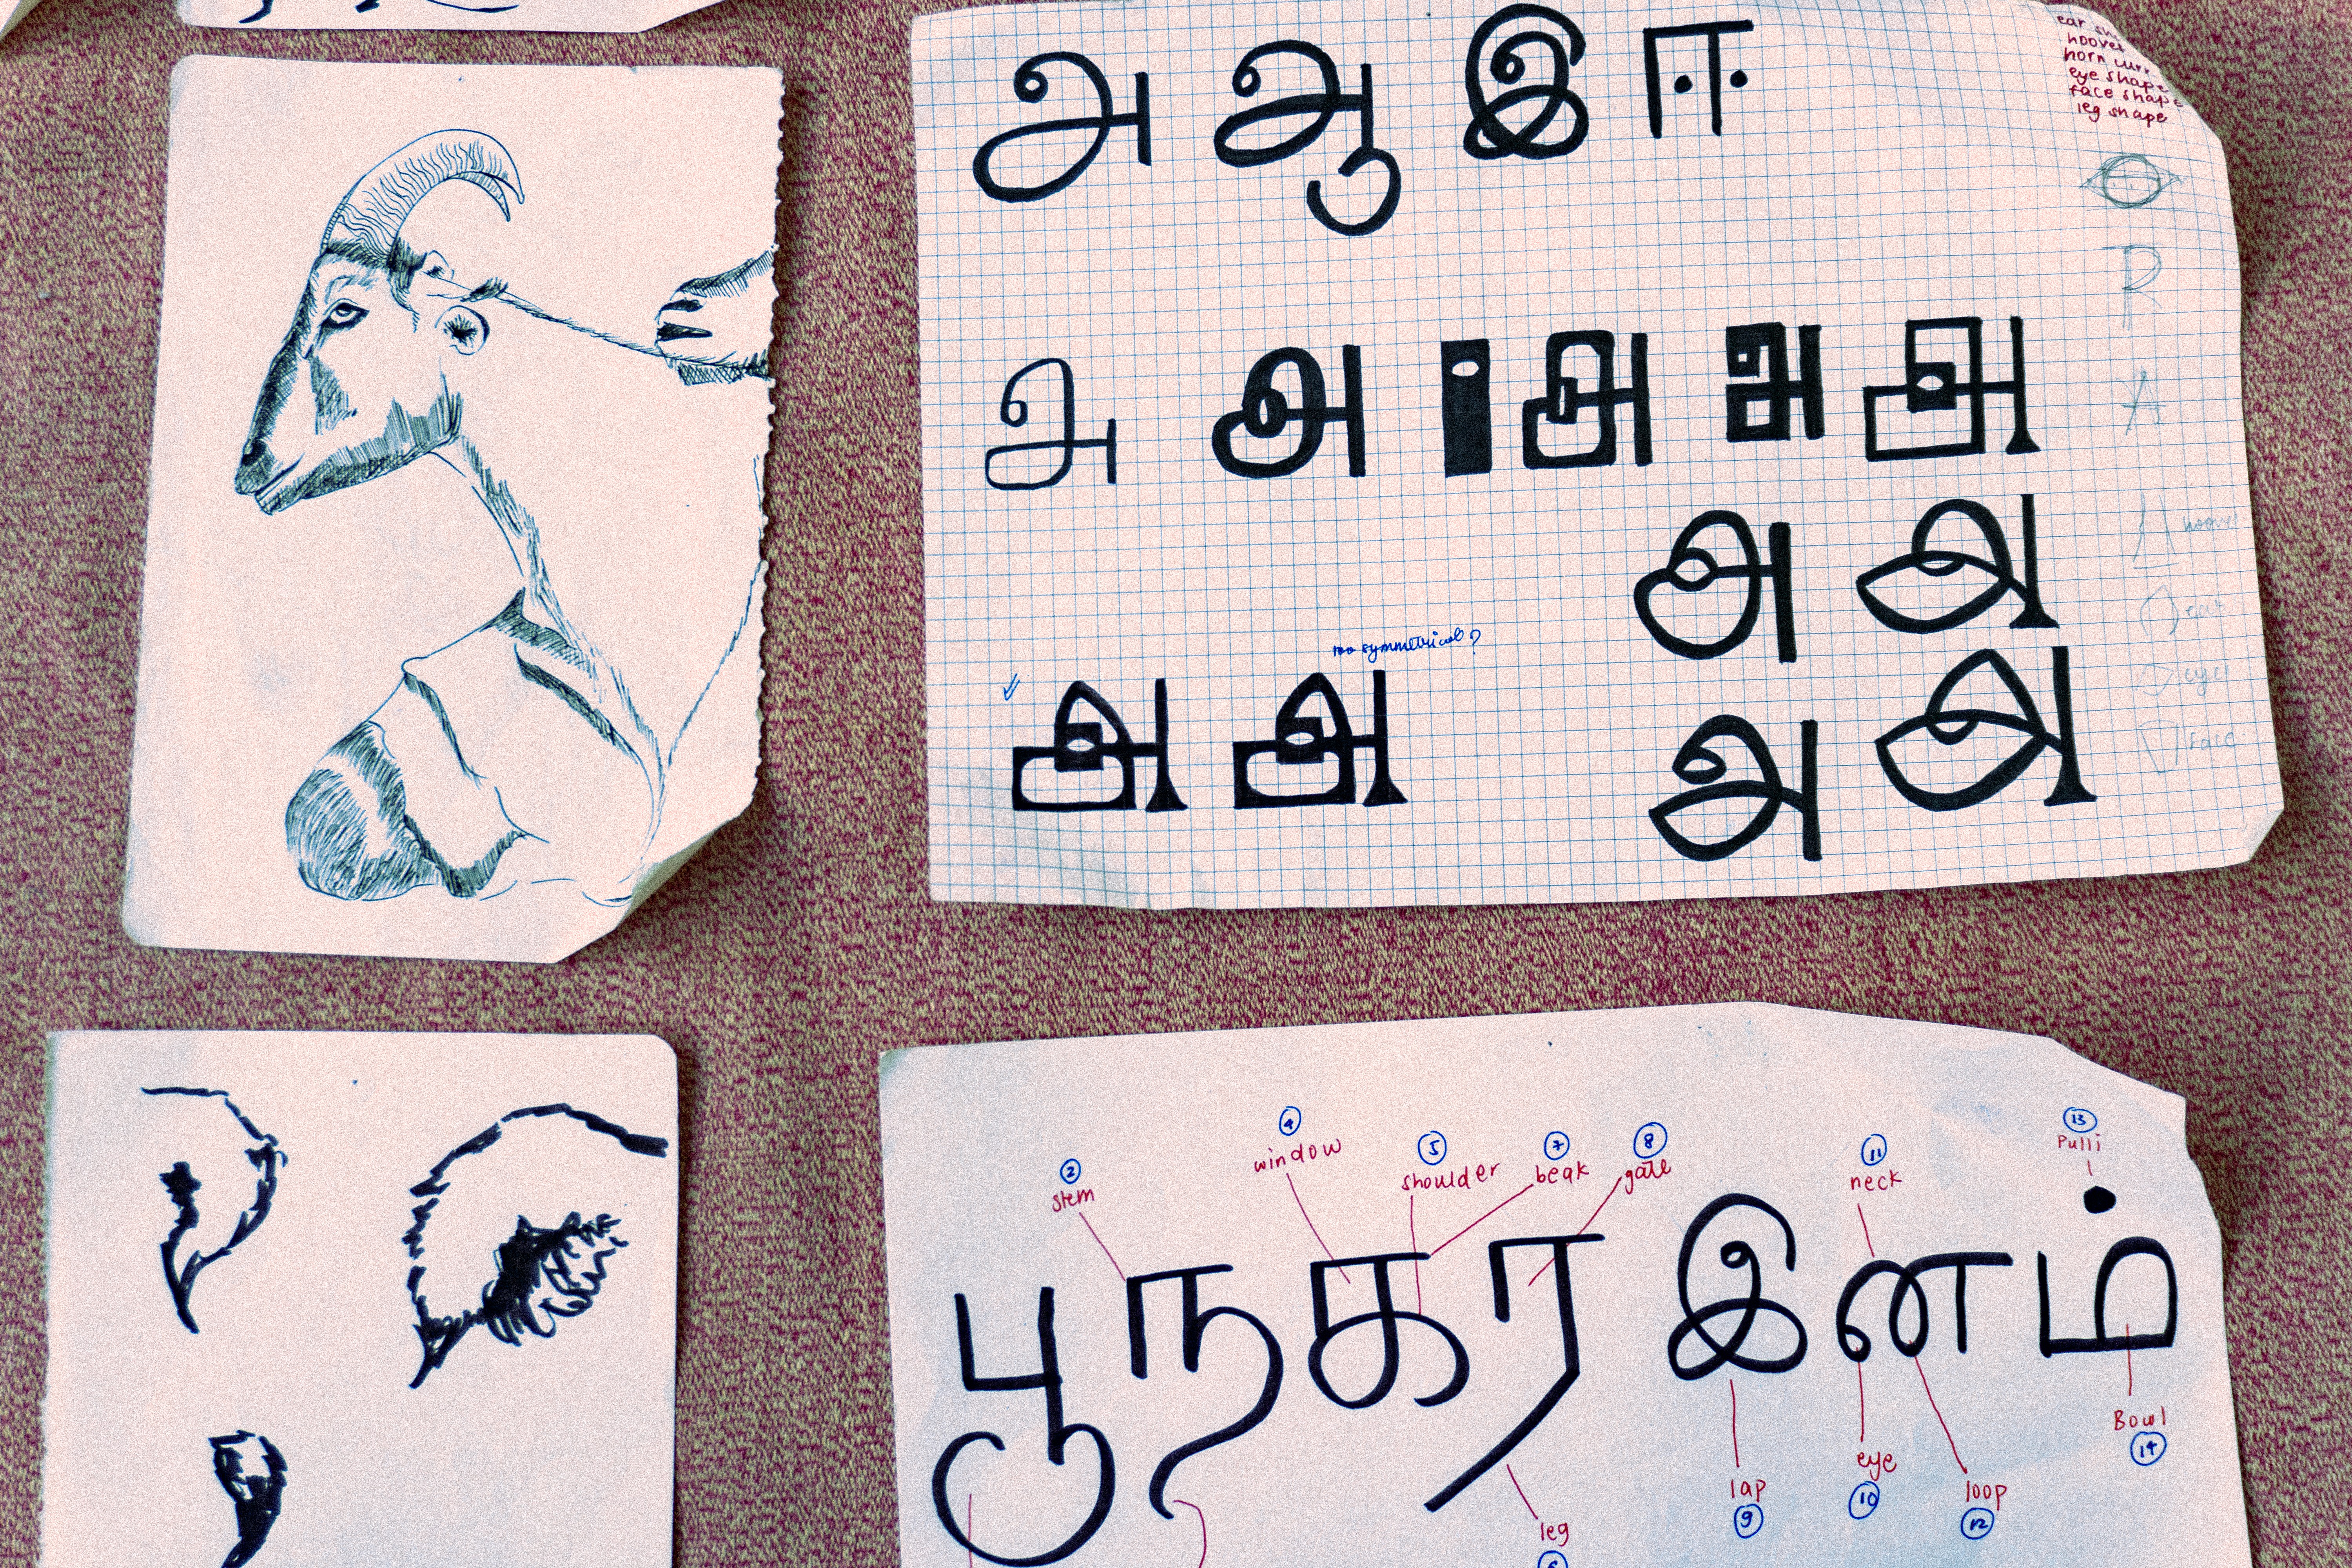 அ ஆ இ ஈ
horn
eye shape
face shape
leg shape
R
A
அ அ அ அ அ
அ அ
too symmetrical?
அ அ
அ அ
hoove
ear
eye
face
2 4 5 7 8 11 13
stem window shoulder beak gate neck Pulli
பூ ந க ர இ ன ம்
leg lap eye loop Bowl
9 10 12 14